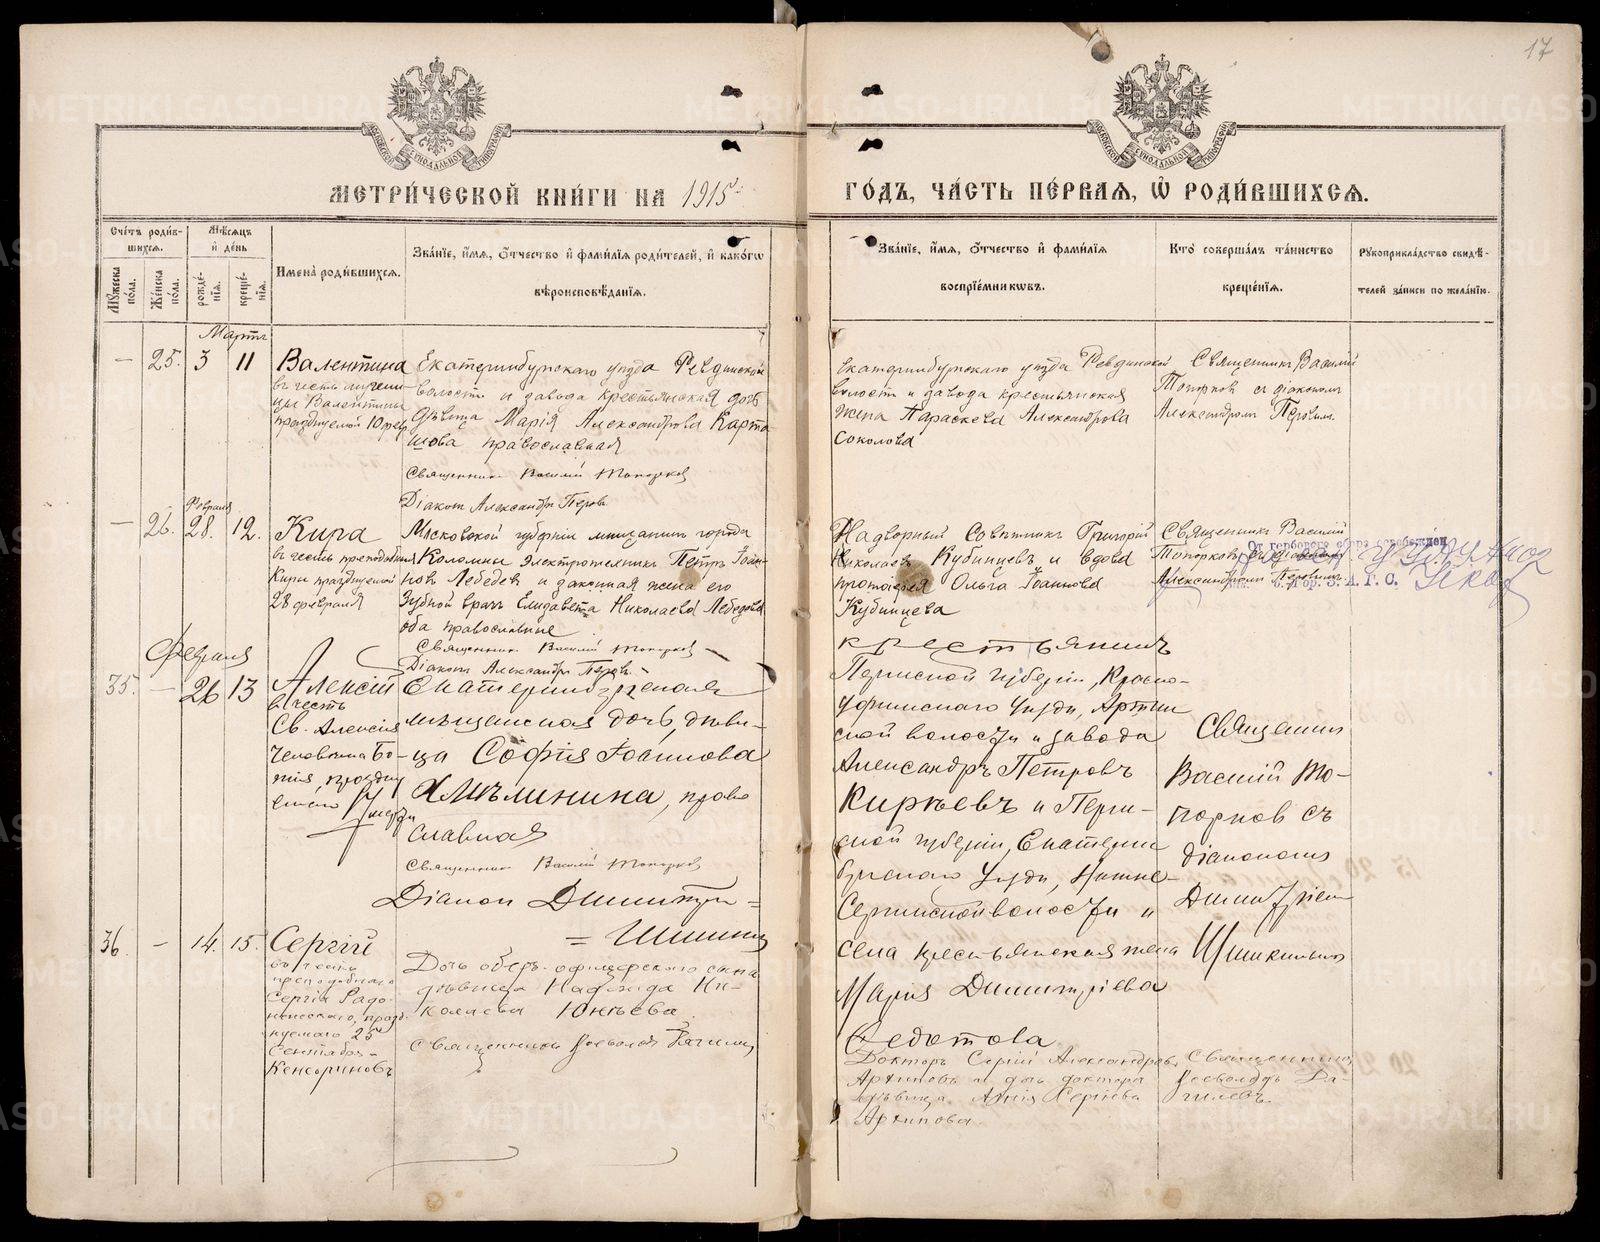 17
МЕТРИ́ЧЕСКОЙ КНИ́ГИ НА 1915
ГО́ДЪ, ЧА́СТЬ ПЕ́РВАЯ, Ѡ҆ РОДИ́ВШИХСЯ.
Сче́тъ роди́в-
шихся.
Мꙋжеска по́ла.
Же́нска по́ла.
Мѣ́сяцъ
и҆ де́нь
рожде́-
нїя.
креще́-
нїя.
И҆мена̀ роди́вшихся.
Зва́нїе, и҆́мя, ѻ҆́тчество и҆ фами́лїя роди́телей, и҆ како́гѡ
вѣроисповѣ́данїя.
Зва́нїе, и҆́мя, ѻ҆́тчество и҆ фами́лїя
воспрїе́мникѡвъ.
Кто̀ соверша́лъ та́инство
креще́нїя.
Рꙋкоприкла́дство свидѣ́-
телей за́писи по жела́нїю.
Мартъ
— 25. 3 11
Валентина
въ честь мучени-
цы Валентины
празднуемой 10 фев
Екатеринбургскаго уѣзда Ревдинской
волости и завода крестьянская дочь
дѣвица Марія Александрова Карта-
шова православная
Священникъ Василій Топорковъ
Діаконъ Александръ Перовъ
Екатеринбургскаго уѣзда Ревдинской
волости и завода крестьянская
жена Параскева Александрова
Соколова
Священникъ Василій
Топорковъ съ діакономъ
Александромъ Перовымъ
Февраля
— 26. 28. 12.
Кира
въ честь преподобныя
Киры празднуемой
28 февраля
Московской губерніи мѣщанинъ города
Коломны Электротехникъ Петръ Іоан-
новъ Лебедевъ и законная жена его
Зубной врачъ Елизавета Николаева Лебедева
оба православные
Священникъ Василій Топорковъ
Діаконъ Александръ Перовъ
Надворный Совѣтникъ Григорій
Николаевъ Кубинцевъ и вдова
протоіерея Ольга Іоаннова
Кубинцева
Священникъ Василій
Топорковъ съ діакономъ
Александромъ Перовымъ
От гербового сбора освобожден
Гор. З. А. Г. С.
Февраля
35. — 26 13
Алексій
въ честь
Св. Алексія
человѣка Бо-
жія, праздну
емаго 17
марта
Екатеринбургская
мѣщанская дочь, дѣви-
ца Софія Іоаннова
Хмѣлинина, право
славная
Священникъ Василій Топорковъ
Діаконъ Димитри=
= Шишкинъ
крестьянинъ
Пермской губерніи, Красно-
уфимскаго уѣзда, Артин
ской волости и завода
Александръ Петровъ
Кирѣевъ и Перм-
ской губерніи, Екатерин
бургскаго уѣзда, Нижне-
Сергинской волости и
села крестьянская жена
Марія Димитріева
Ѳедотова
Священникъ
Василій То-
порковъ съ
діакономъ
Димитріемъ
Шишкинымъ
36 — 14. 15.
Сергій
въ честь
преподобнаго
Сергія Радо-
нежскаго, празд-
нуемаго 25
Сентября —
Кенсориновъ
Дочь оберъ-офицерскаго сына
дѣвица Надежда Ни-
колаева Юнѣева
Священникъ Всеволодъ
Докторъ Сергій Александровъ
Архиповъ и дочь доктора
дѣвица Анна Сергіева
Архипова
Священникъ
Всеволодъ